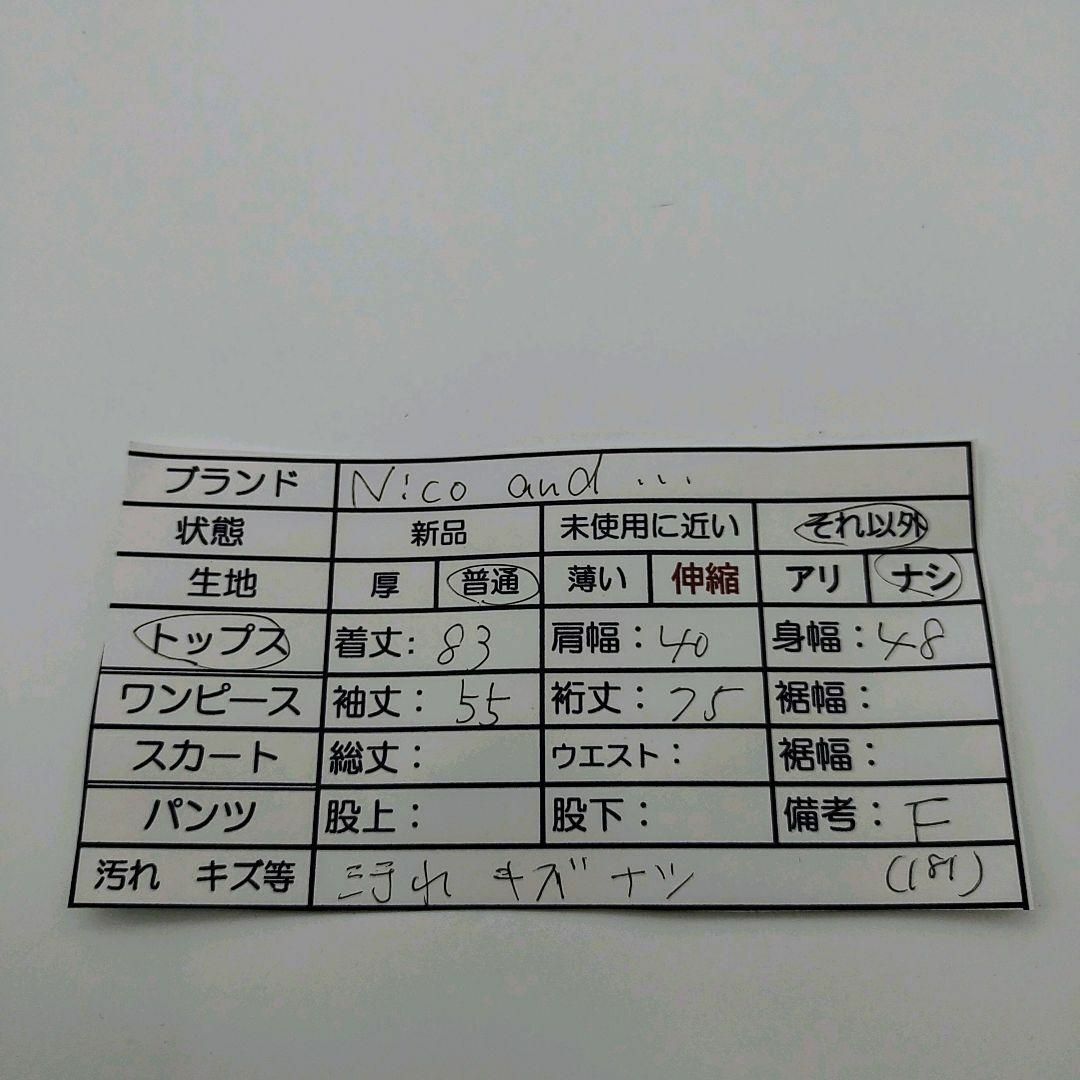 ブランド Nico and ...
状態 新品 未使用に近い それ以外
生地 厚 普通 薄い 伸縮 アリ ナシ
トップス 着丈: 83 肩幅: 40 身幅: 48
ワンピース 袖丈: 55 裄丈: 75 裾幅:
スカート 総丈: ウエスト: 裾幅:
パンツ 股上: 股下: 備考: F
汚れ キズ等 汚れ キズ ナシ (181)